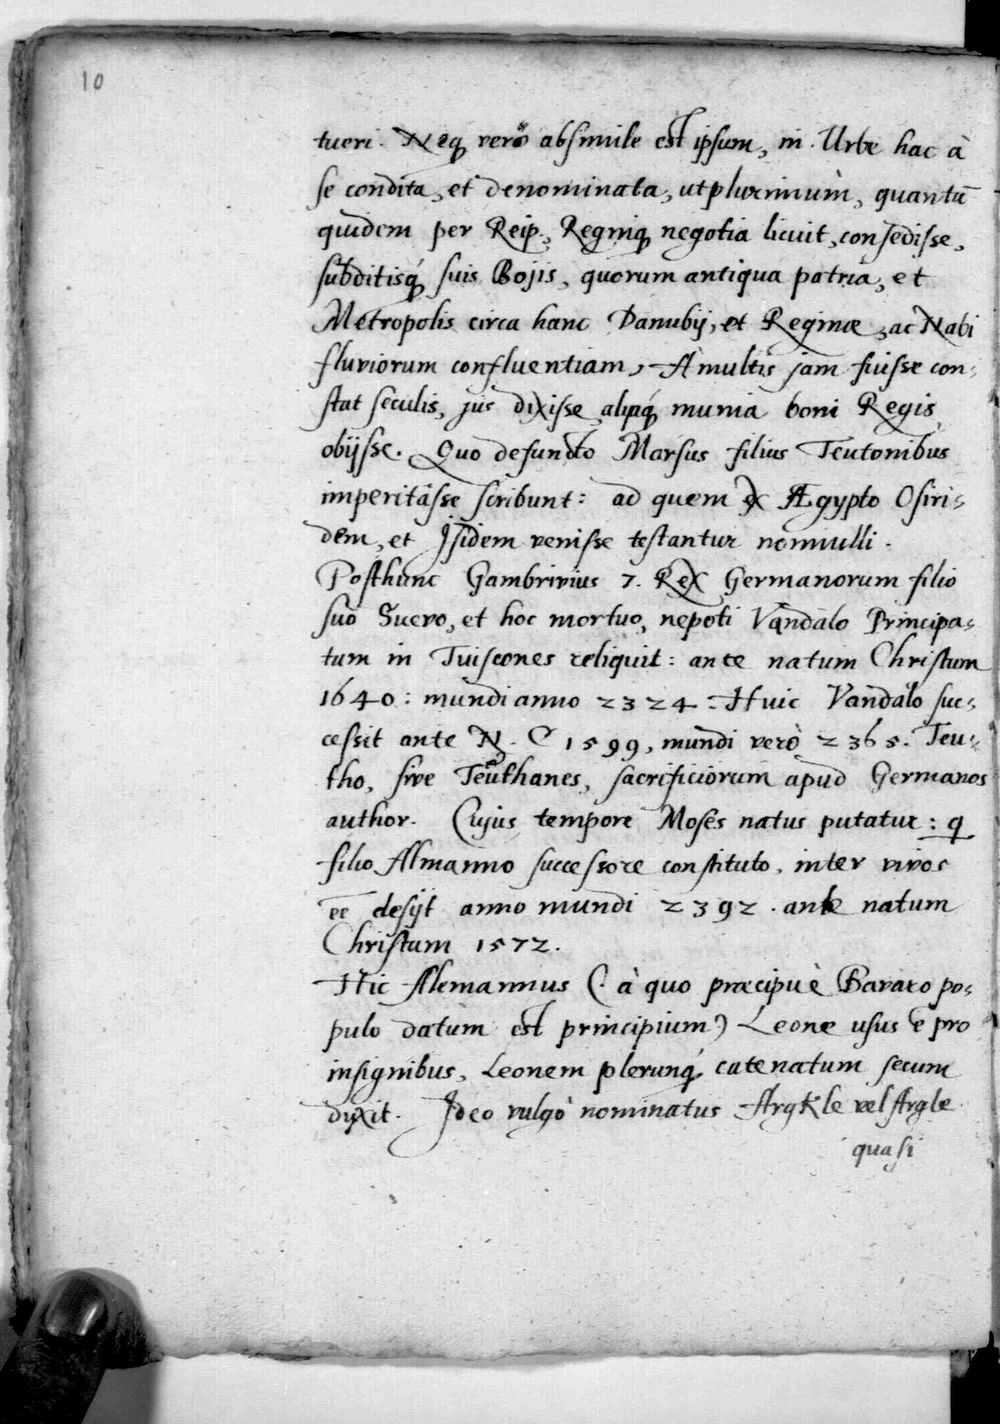 10
tueri. Neq́ verò absimile est ipsum, in Urbe hac à
se condita, et denominata, utplurimùm, quantū
quidem per Reip., Regniq́ negotia licuit, consedisse,
subditisq́ suis Bojis, quorum antiqua patria, et
Metropolis circa hanc Danubij, et Reginæ, ac Nabi
fluviorum confluentiam, A multis jam fuisse con-
stat seculis, jus dixisse, aliaq́ munia boni Regis
obijsse. Quo defuncto Marsus filius Teutonibus
imperitâsse scribunt: ad quem ex Ægypto Osiri-
dem, et Isidem venisse testantur nonnulli.
Posthunc Gambrivius 7. Rex Germanorum filio
suo Suevo, et hoc mortuo, nepoti Vandalo Principa-
tum in Tuiscones reliquit: ante natum Christum
1640: mundi anno 2324. Huic Vandalo suc-
cessit ante N. C 1599, mundi verò 2365. Teu-
tho, sive Teuthanes, sacrificiorum apud Germanos
author. Cujus tempore Moses natus putatur: q
filio Almanno successore constituto, inter vivos
ēē desijt anno mundi 2392. ante natum
Christum 1572.
Hic Alemannus (à quo præcipuè Bavaro po-
pulo datum est principium) Leone usus ē pro
insignibus, Leonem plerunq́ catenatum secum
duxit. Ideo vulgò nominatus Argkle vel Argle
quasi